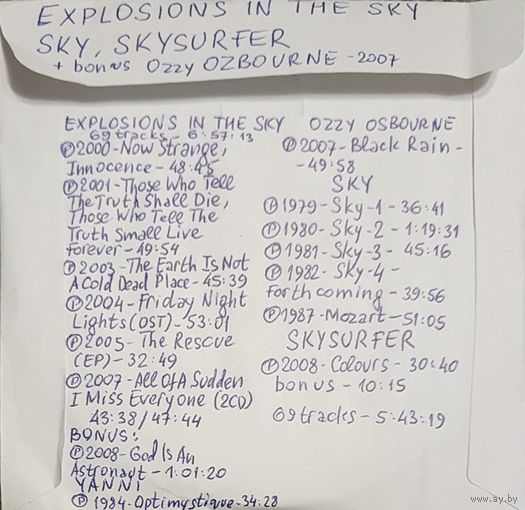 EXPLOSIONS IN THE SKY
SKY, SKYSURFER
+ bonus OZZY OZBOURNE - 2007
EXPLOSIONS IN THE SKY
69 tracks - 6:57:13
Ⓟ2000-Now Strange,
Innocence - 48:45
Ⓟ2001-Those Who Tell
The Truth Shall Die,
Those Who Tell The
Truth Small Live
Forever - 49:54
Ⓟ2003-The Earth Is Not
A Cold Dead Place - 45:39
Ⓟ2004-Friday Night
Lights (OST) - 53:01
Ⓟ2005-The Rescue
(EP) - 32:49
Ⓟ2007-All Of A Sudden
I Miss Everyone (2CD)
43:38/47:44
BONUS:
Ⓟ2008-God Is An
Astronaut - 1:01:20
YANNI
Ⓟ1984-Optimystique-34:28
OZZY OSBOURNE
Ⓟ2007-Black Rain -
- 49:58
SKY
Ⓟ1979-Sky-1 - 36:41
Ⓟ1980-Sky-2 - 1:19:31
Ⓟ1981-Sky-3 - 45:16
Ⓟ1982-Sky-4 -
Forthcoming - 39:56
Ⓟ1987-Mozart - 51:05
SKYSURFER
Ⓟ2008-Colours - 30:40
bonus - 10:15
69 tracks - 5:43:19
www.ay.by